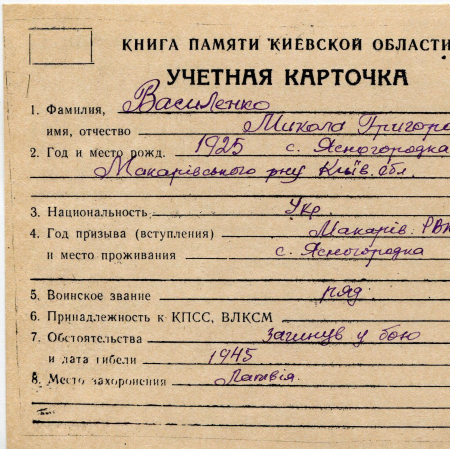 КНИГА ПАМЯТИ КИЕВСКОЙ ОБЛАСТИ
УЧЕТНАЯ КАРТОЧКА
1. Фамилия, Василенко
имя, отчество Микола Григоро
2. Год и место рожд. 1925 с. Ясногородка
Макарівського р-ну Київ. обл.
3. Национальность Укр.
4. Год призыва (вступления) Макарів. РВК
и место проживания с. Ясногородка
5. Воинское звание ряд.
6. Принадлежность к КПСС, ВЛКСМ
7. Обстоятельства загинув у бою
и дата гибели 1945
8. Место захоронения Латвія.